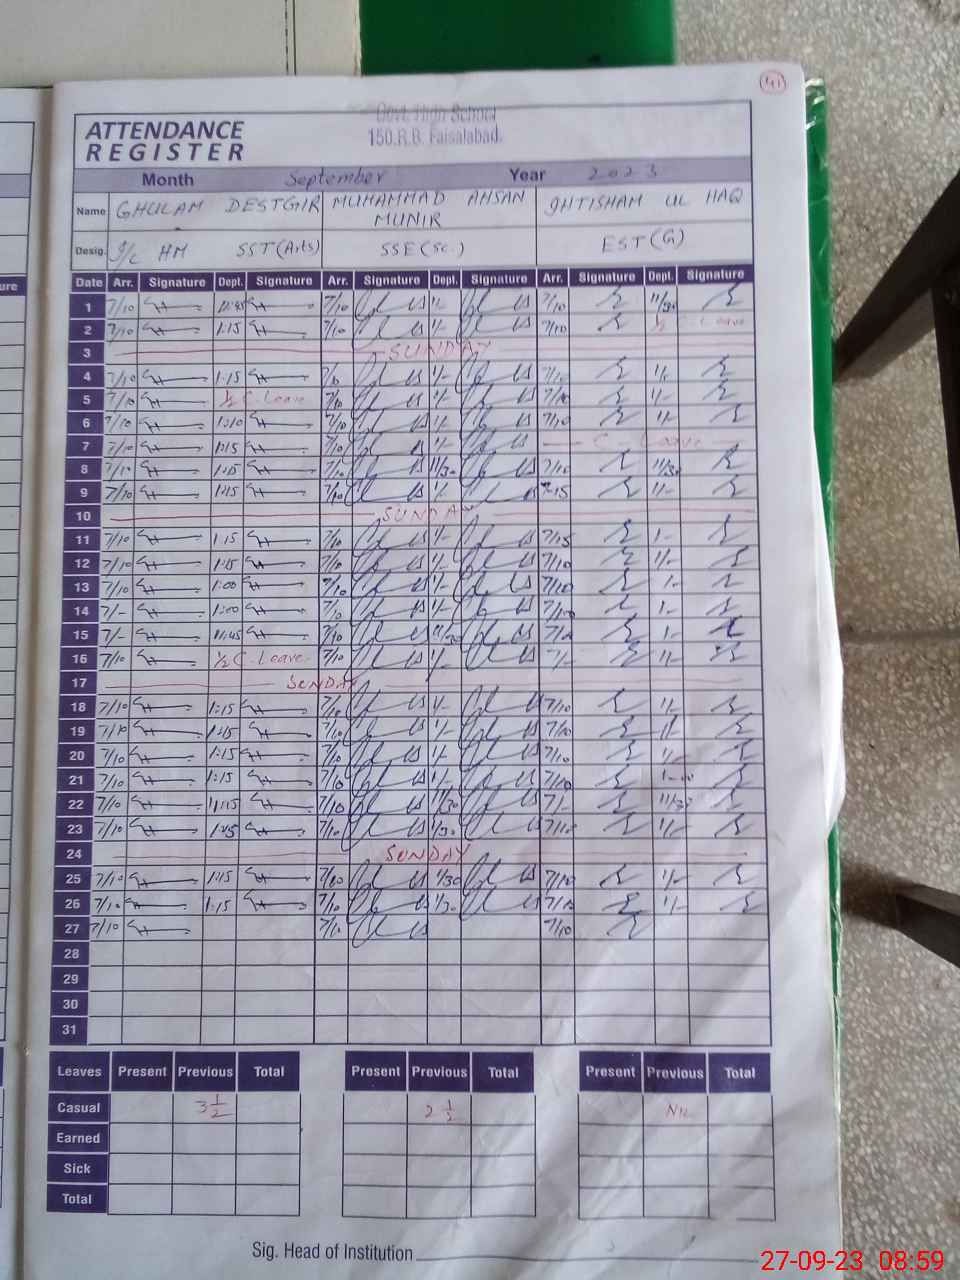 41
Govt. High School
150.R.B. Faisalabad.
ATTENDANCE
REGISTER
Month September Year 2023
Name GHULAM DESTGIR MUHAMMAD AHSAN MUNIR IHTISHAM UL HAQ
Desig. I/C HM SST(Arts) SSE(Sc.) EST(G)
Date Arr. Signature Dept. Signature Arr. Signature Dept. Signature Arr. Signature Dept. Signature
1 7/10 7/10 7/10 11/30
2 7/10 1:15 7/10 7/10 ½ C. Leave
3 SUNDAY
4 7/10 1:15
5 7/10 ½ C. Leave 7/10 7/10
6 7/10 1:10 7/10 7/10
7 7/10 1:15 7/10 C - Leave
8 7/10 1:15 7/10 11/30 7/10 11/30
9 7/10 1:15 7/10
10 SUNDAY
11 7/10 1:15 7/10 7/15
12 7/10 1:15 7/10 7/10
13 7/10 1:00 7/10 7/10
14 7/- 1:00
15 7/- 11:45 7/10 11/30
16 7/10 ½ C. Leave 7/10 7/-
17 SUNDAY
18 7/10 1:15 7/10
19 7/10 1:15 7/10 7/10
20 7/10 1:15 7/10 7/10
21 7/10 1:15 7/10 7/10
22 7/10 11:15 7/10 11/30 7/- 11/30
23 7/10 1:45 7/10 1/30
24 SUNDAY
25 7/10 1:15 7/10 1/30 7/10
26 7/10 1:15 7/10 1/30
27 7/10 7/10
28
29
30
31
Leaves Present Previous Total Present Previous Total Present Previous Total
Casual 3 1/2 2 1/2 NIL
Earned
Sick
Total
Sig. Head of Institution
27-09-23 08:59